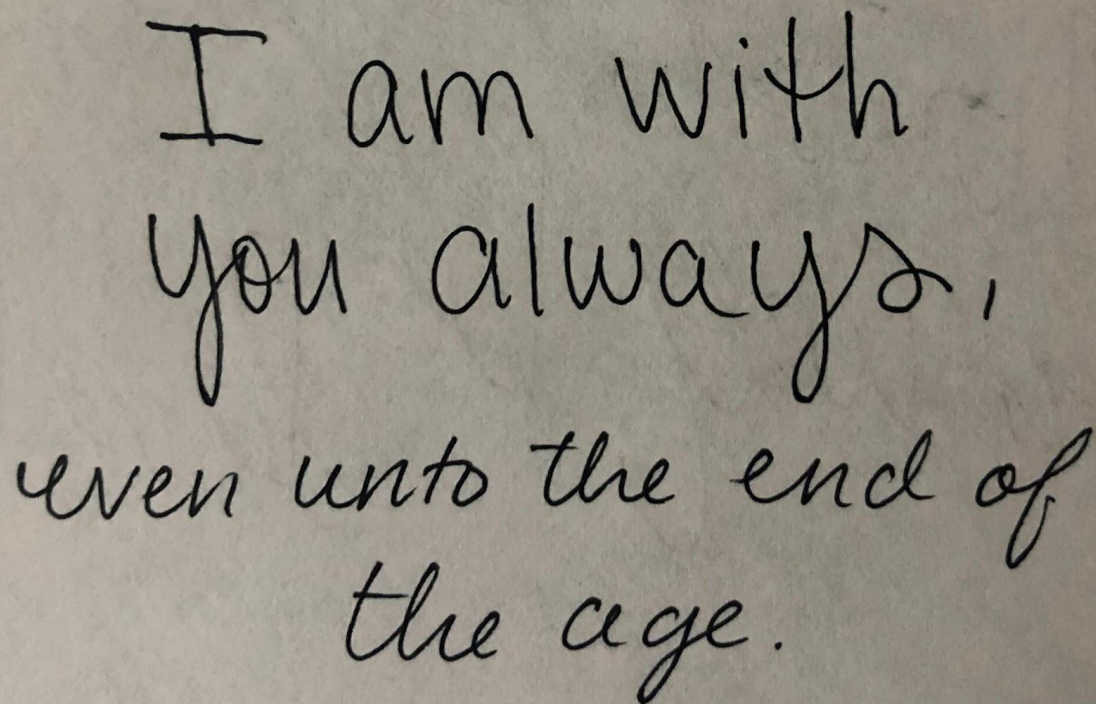 I am with
you always,
even unto the end of
the age.